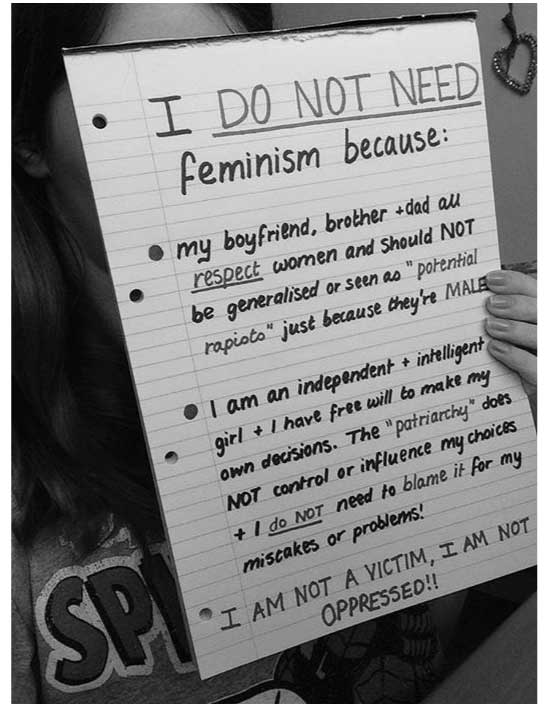 I DO NOT NEED
feminism because:
my boyfriend, brother + dad all
respect women and should NOT
be generalised or seen as "potential
rapists" just because they're MALE
I am an independent + intelligent
girl + I have free will to make my
own decisions. The "patriarchy" does
NOT control or influence my choices
+ I do NOT need to blame it for my
mistakes or problems!
I AM NOT A VICTIM, I AM NOT
OPPRESSED!!